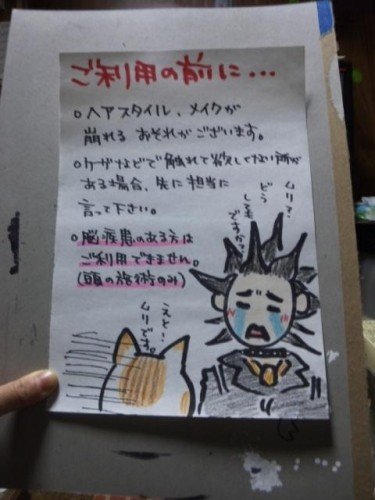 ご利用の前に…
○ヘアスタイル、メイクが
崩れる おそれがございます。
○ケガなどで触れて欲しくない所が
ある場合、先に担当に
言って下さい。
○脳疾患のある方は
ご利用できません。
(頭の施術のみ)
ムリ？
どう
しても
ですか？
えと…
ムリです。